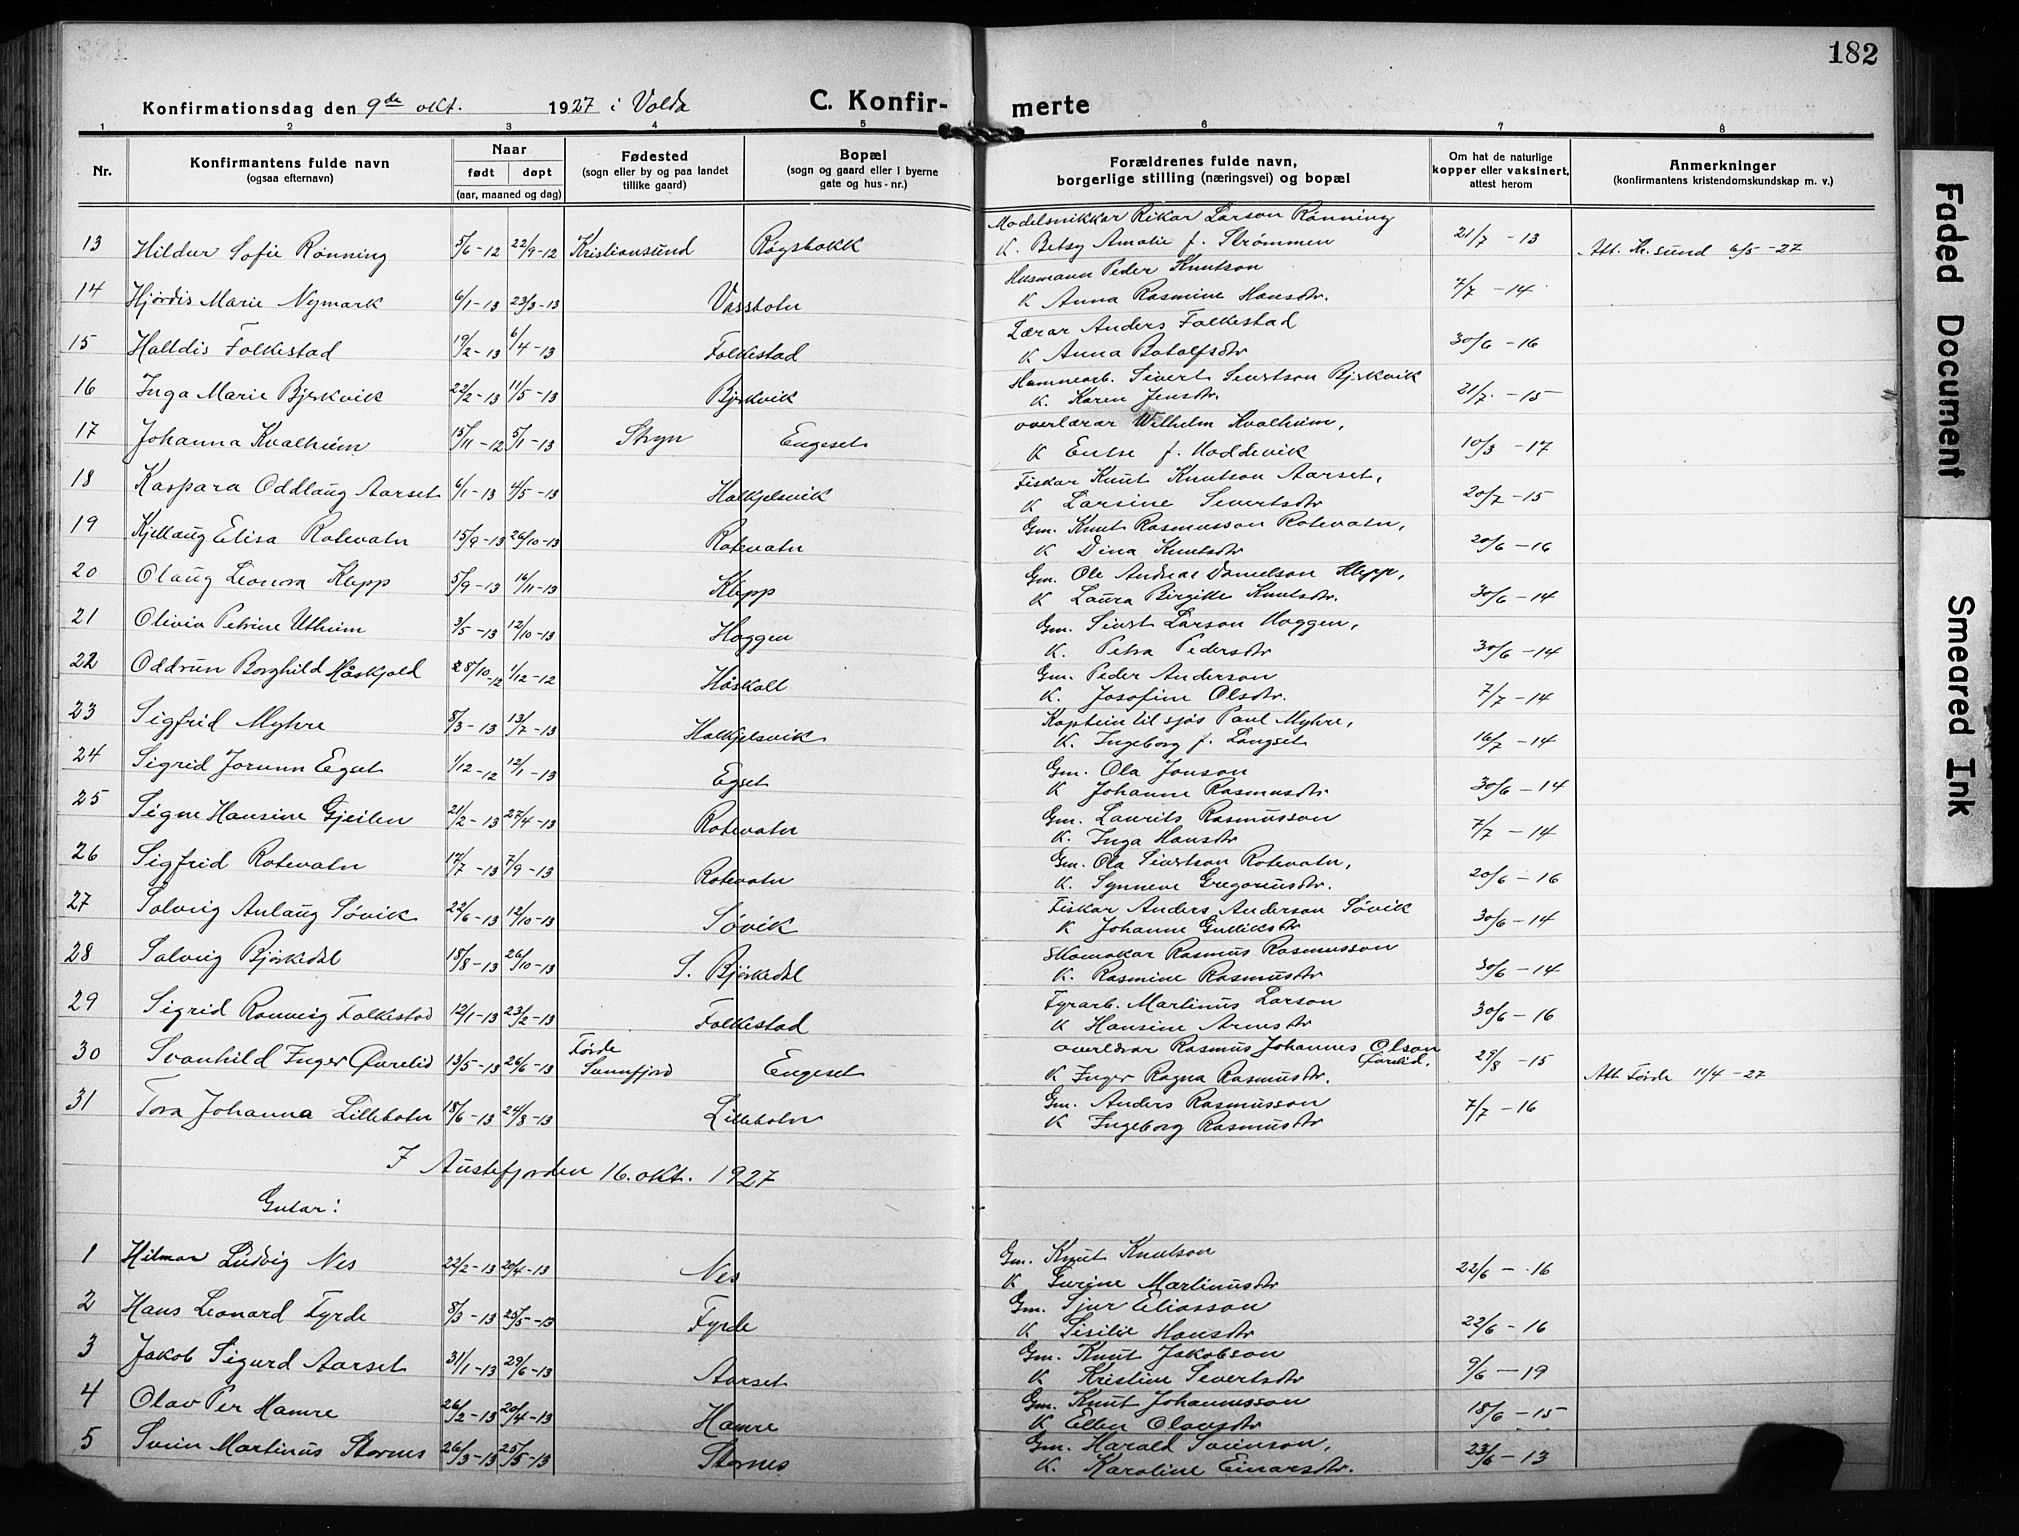 182
Konfirmationsdag den 9de okt. 1927 i Volda C. Konfir- merte
1 2 3 4 5 6 7 8
Nr. Konfirmantens fulde navn (ogsaa efternavn) Naar født døpt (aar, maaned og dag) Fødested (sogn eller by og paa landet tillike gaard) Bopæl (sogn og gaard eller i byerne gate og hus-nr.) Forældrenes fulde navn, borgerlige stilling (næringsvei) og bopæl Om hat de naturlige kopper eller vaksinert, attest herom Anmerkninger (konfirmantens kristendomskundskap m. v.)
13 Hildur Sofie Rønning 5/6-12 22/9-12 Kristiansund Røysbakk Modelsnikkar Rikar Larson Rønning
K. Betsy Amalie f. Strømmen 21/7-13 Att. Kr.sund 6/5-27
14 Hjørdis Marie Nymark 6/1-13 23/3-13 Vassbotn Husmann Peder Knutson
K Anna Rasmine Hansdtr. 7/7-14
15 Halldis Folkestad 19/2-13 6/4-13 Folkestad Lærar Anders Folkestad
K Anna Botolfsdtr 30/6-16
16 Inga Marie Bjerkvik 22/2-13 11/5-13 Bjerkvik Hamnearb. Sivert Sivertson Bjerkvik
K. Karen Jensdtr. 21/7-15
17 Johanna Kvalheim 15/11-12 5/1-13 Stryn Engeset overlærar Wilhelm Kvalheim,
K f. Hoddevik 10/3-17
18 Kaspara Oddlaug Aarset 6/1-13 4/5-13 Halkjelsvik Fiskar Knut Knutson Aarset,
K Larsine Severtsdtr 20/7-15
19 Kjellaug Elisa Rotevatn 15/9-13 26/10-13 Rotevatn Gm. Knut Rasmusson Rotevatn,
K Dina Knutsdtr 20/6-16
20 Olaug Leonora Klepp 5/9-13 16/11-13 Klepp Gm. Ole Andreas Danielson Klepp,
K Laura Birgitte Knutsdtr. 30/6-14
21 Olivia Petrine Utheim 3/5-13 12/10-13 Hoggen Gm. Sivert Larson Hoggen,
K. Petra Pedersdtr 30/6-14
22 Oddrun Borghild Håskjold 28/10-12 1/12-12 Håskoll Gm. Peder Anderson
K. Josefine Olsdtr. 7/7-14
23 Sigfrid Myhre 8/3-13 13/7-13 Halkjelsvik Kaptein til sjøs Paul Myhre,
K. Ingeborg f. Langset 16/7-14
24 Sigrid Jorunn Egset 1/12-12 12/1-13 Egset Gm. Ola Jonson
K Johanne Rasmusdtr 30/6-14
25 Signe Hansine Gjeilen 21/2-13 27/4-13 Rotevatn Gm. Laurits Rasmusson
K. Inga Hansdtr 7/7-14
26 Sigfrid Rotevatn 17/7-13 7/9-13 Rotevatn Gm. Ola Sivertson Rotevatn,
K. Synneve Gregoriusdtr. 20/6-16
27 Solveig Anlaug Søvik 22/6-13 12/10-13 Søvik Fiskar Anders Anderson Søvik
K Johanne Gulliksdtr 30/6-14
28 Solveig Bjørkedal 18/8-13 26/10-13 S. Bjørkedal Skomakar Rasmus Rasmusson
K. Rasmine Rasmusdtr 30/6-14
29 Sigrid Ronveig Folkestad 12/1-13 23/2-13 Folkestad Fyrarb. Martinus Larson
K Hansine Arnesdtr 30/6-16
30 Svanhild Inger Øvrelid 13/5-13 26/6-13 Førde Sunnfjord Engeset overlærar Rasmus Johannes Olson Øvrelid,
K Inger Ragna Rasmusdtr. 29/8-15 Att Førde 11/4-27
31 Tora Johanna Lillebotn 18/6-13 24/8-13 Lillebotn Gm. Anders Rasmusson
K Ingeborg Rasmusdtr 7/7-16
I Austefjorden 16. okt. 1927
Gutar:
1 Hilmar Ludvig Nes 22/2-13 20/4-13 Nes Gm. Knut Knutson
K Gurine Martinusdtr 22/6-16
2 Hans Leonard Fyrde 8/3-13 25/5-13 Fyrde Gm. Sjur Eliasson
K Sisilie Hansdtr 22/6-16
3 Jakob Sigurd Aarset 31/1-13 29/6-13 Aarset Gm. Knut Jakobson
K Kristine Severtsdtr 9/6-19
4 Olav Per Hamre 26/2-13 20/4-13 Hamre Gm. Knut Johannusson
K Ellen Olavsdtr 18/6-15
5 Svein Martinus Stornes 26/3-13 25/5-13 Stornes Gm. Harald Sveinson,
K. Karoline Einarsdtr. 23/6-13
Faded Document
Smeared Ink